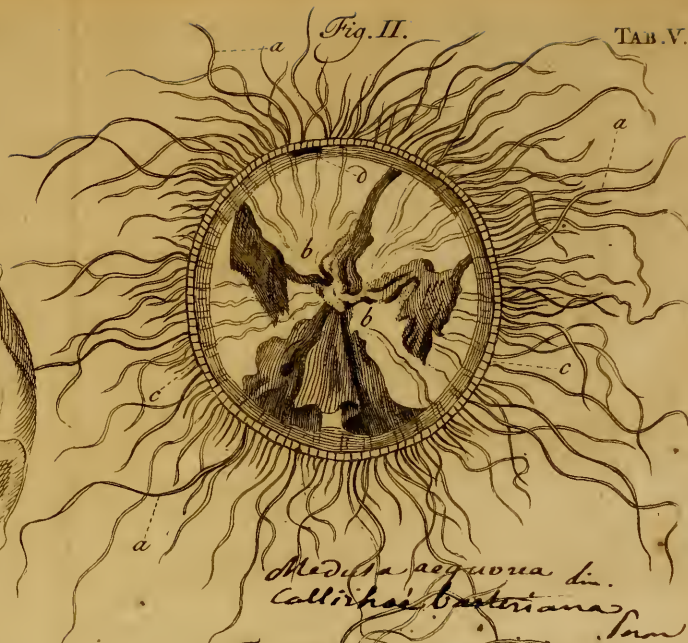 Fig. II.
TAB. V.
a
a
d
b
b
c
c
a
Medusa aequorea Lin.
Callirhoë basteriana